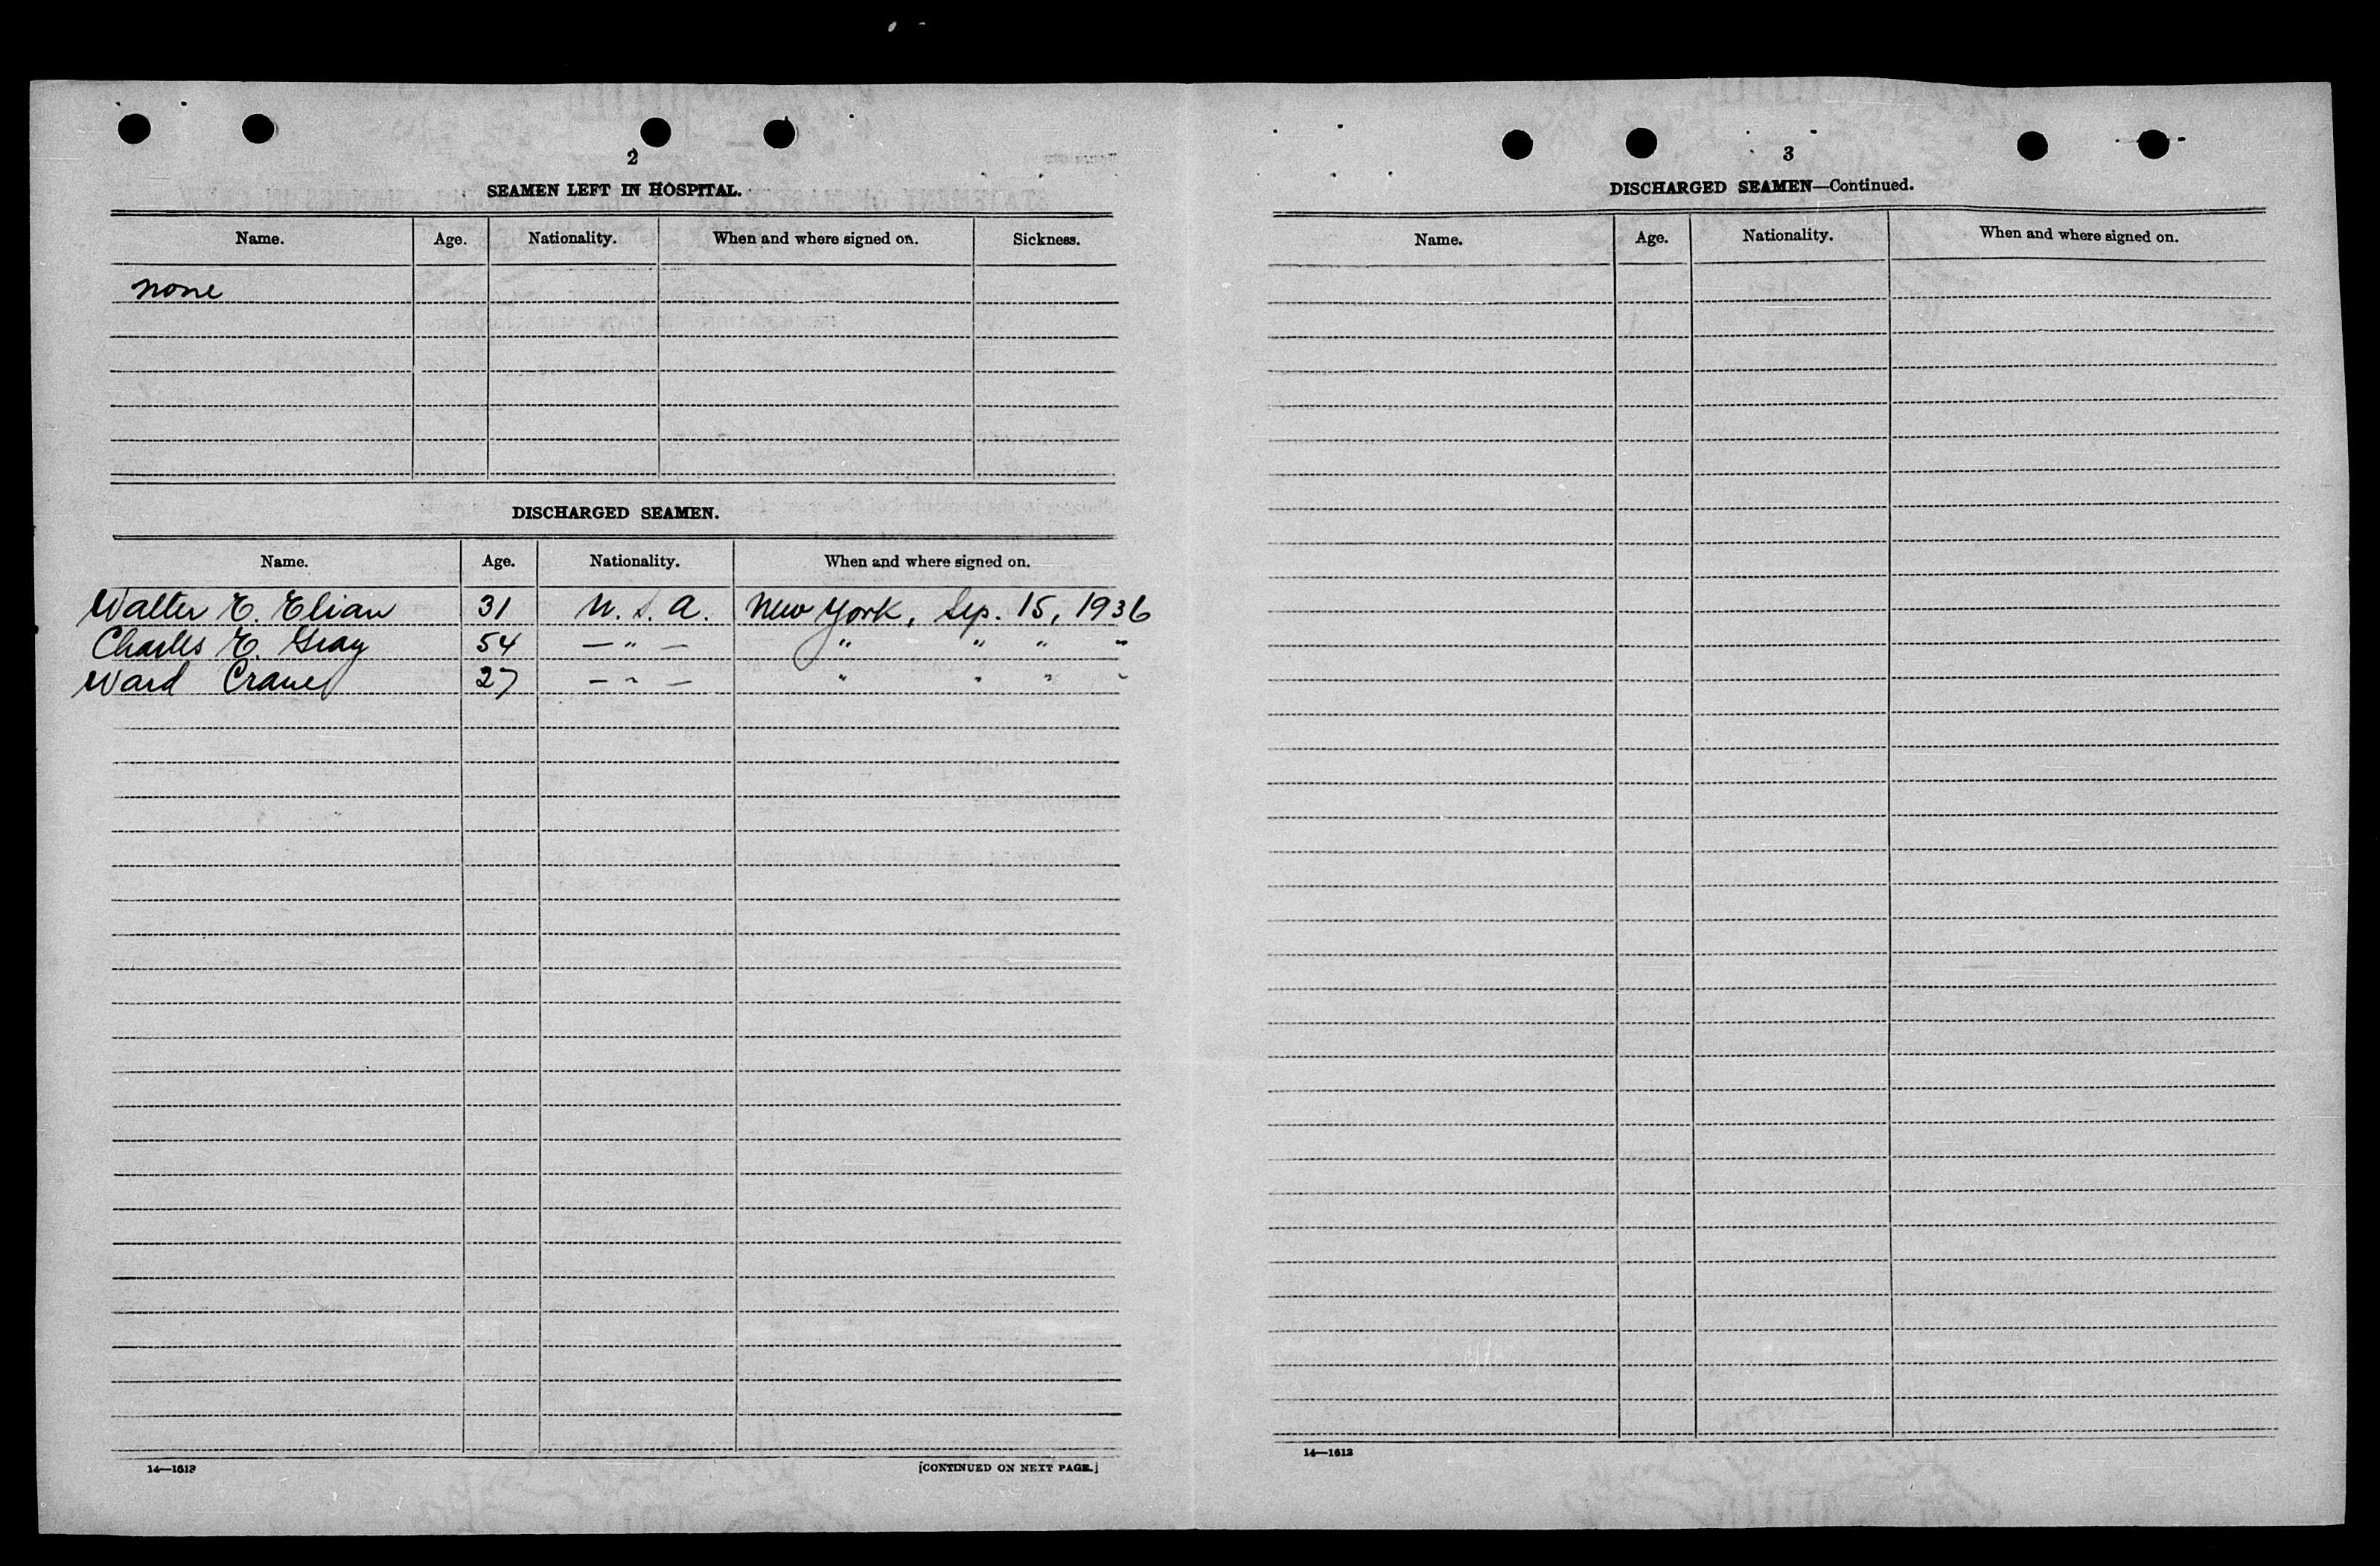 2
SEAMEN LEFT IN HOSPITAL.
Name. Age. Nationality. When and where signed on. Sickness.
none
DISCHARGED SEAMEN.
Name. Age. Nationality. When and where signed on.
Walter E. Elian 31 U.S.A. New York, Sep. 15, 1936
Charles E. Gray 54 — " — " " " "
Ward Crane 27 — " — " " " "
14—1612
[CONTINUED ON NEXT PAGE.]
3
DISCHARGED SEAMEN—Continued.
Name. Age. Nationality. When and where signed on.
14—1612